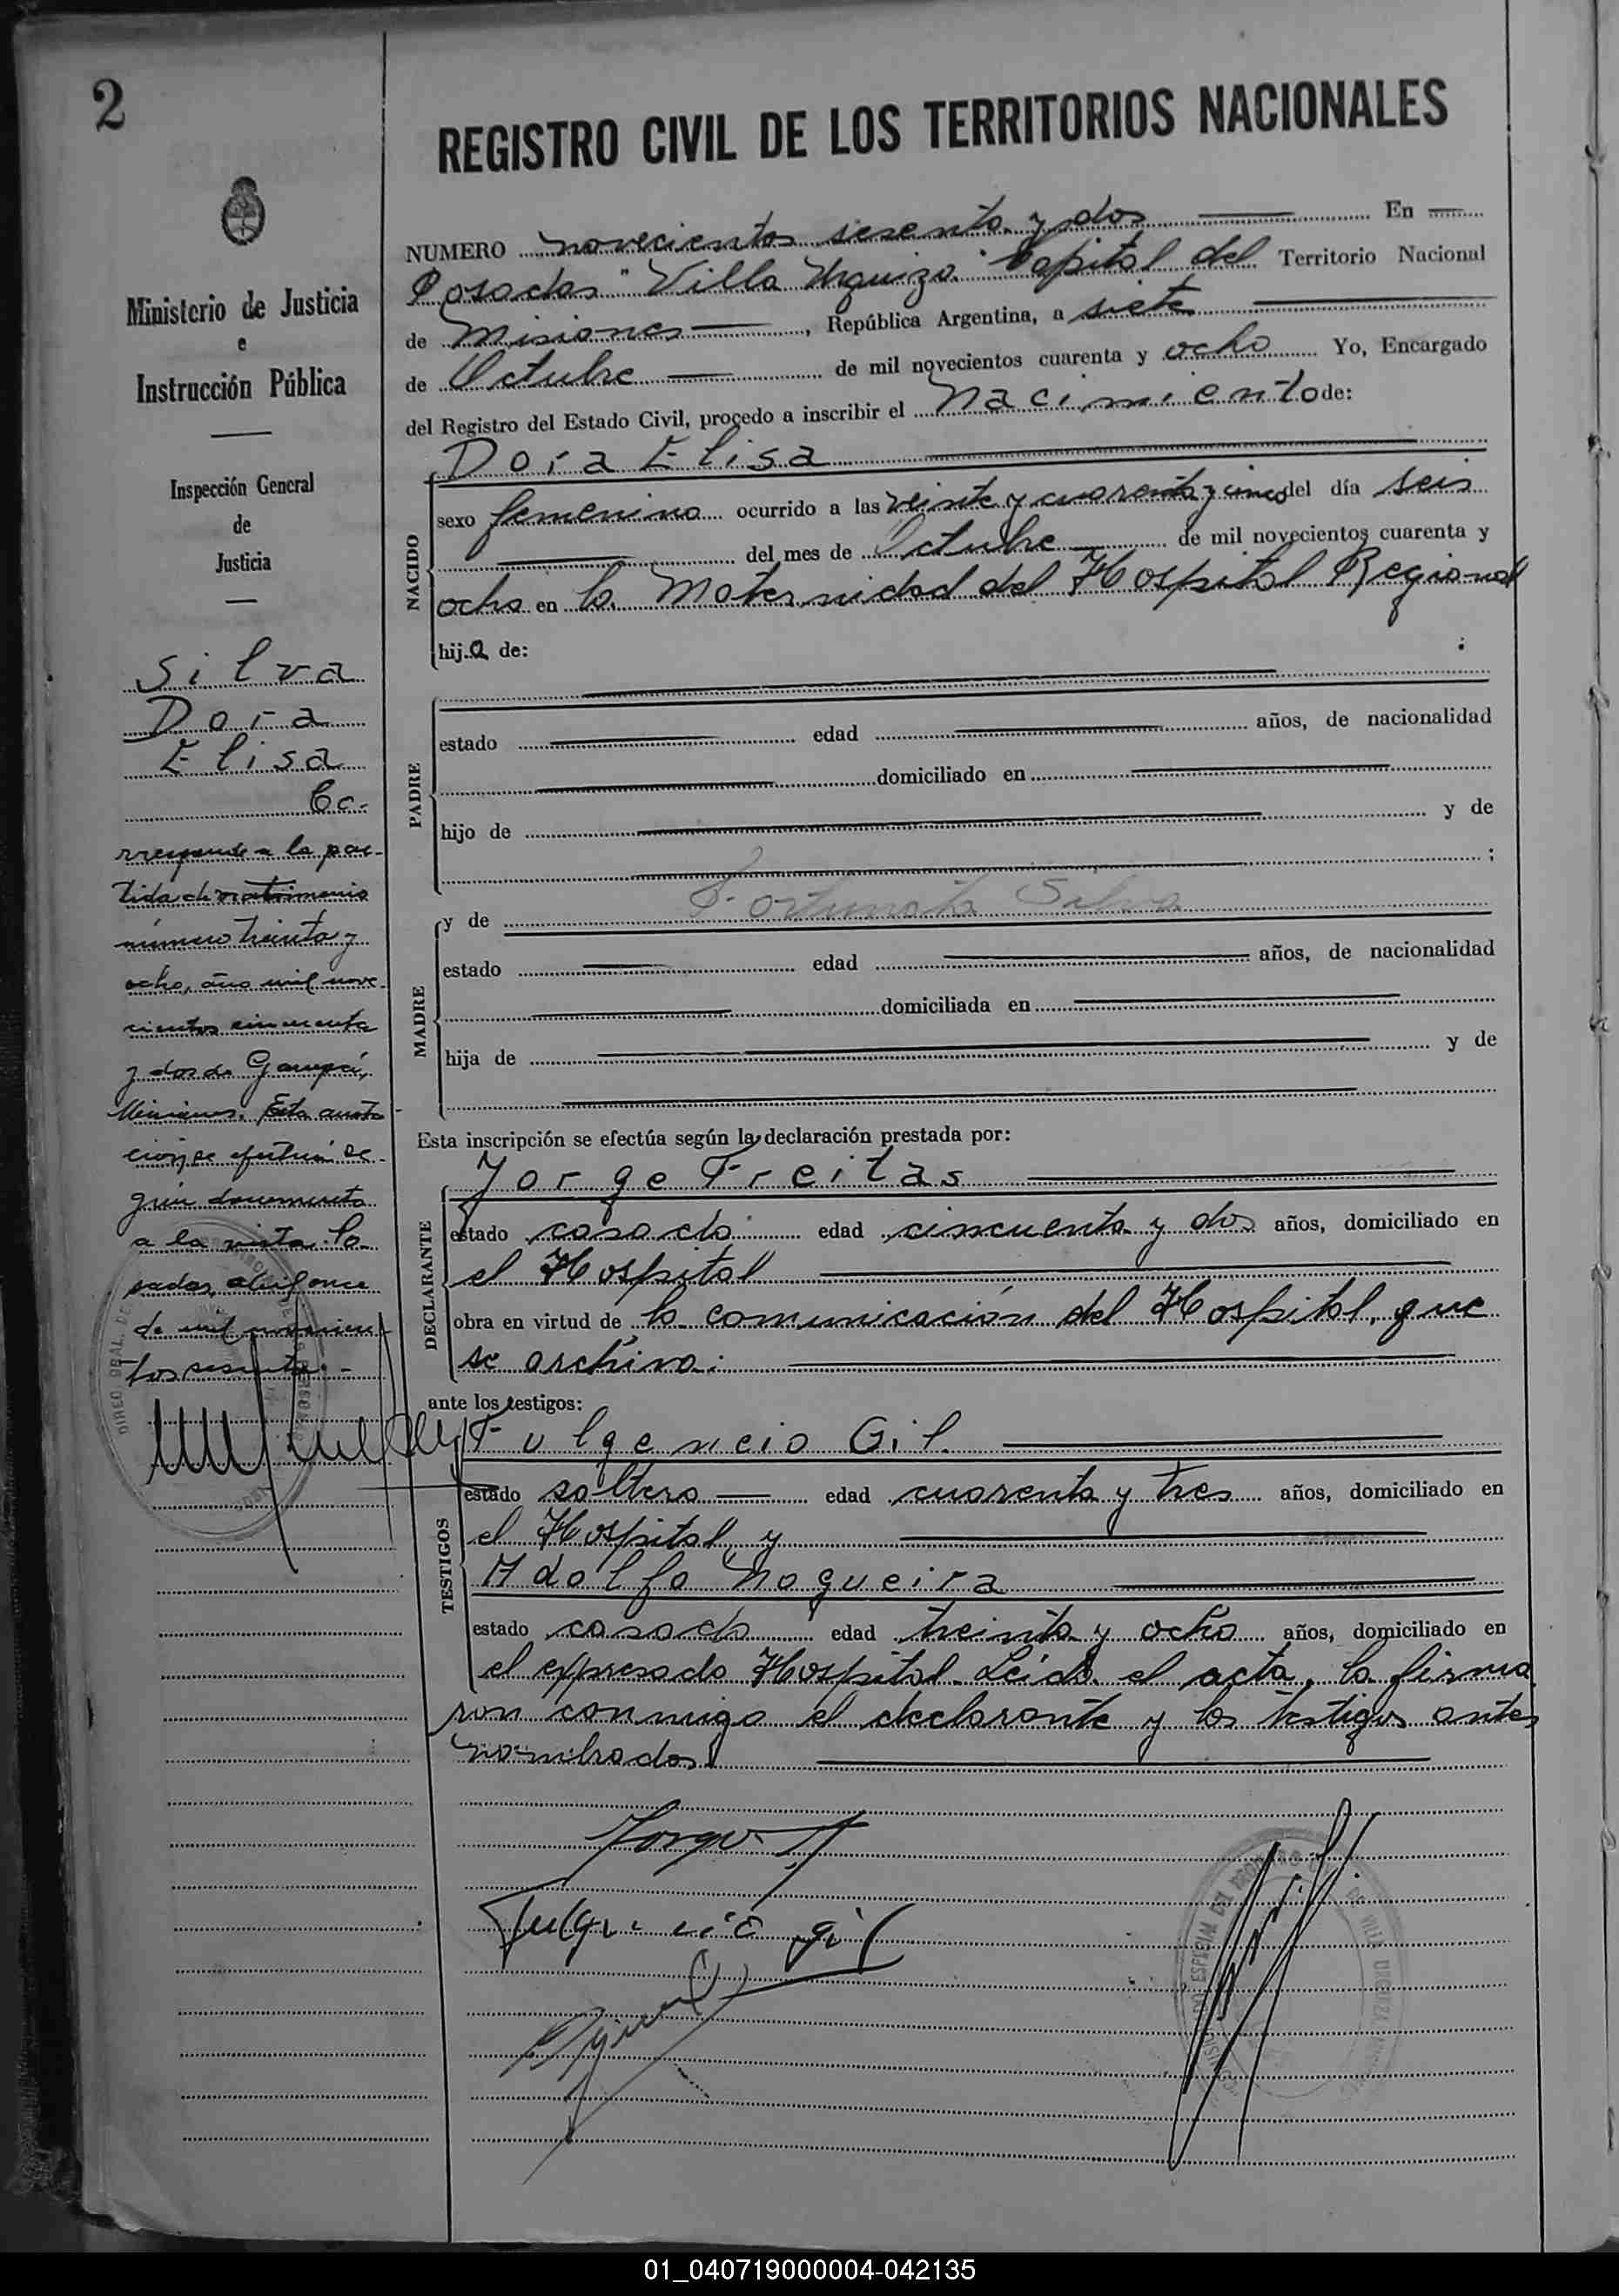 2
REGISTRO CIVIL DE LOS TERRITORIOS NACIONALES
Ministerio de Justicia
e
Instrucción Pública
Inspección General
de
Justicia
Silva
Dora
Elisa
Co-
rresponde a la par-
tida de matrimonio
número treinta y
ocho, año mil nove-
cientos cincuenta
y dos de Garupá,
Misiones. Esta anota
ción se efectúa se-
gún documento
a la vista. Po-
sadas, abril once
de mil novecien-
tos sesenta.-
NUMERO novecientos sesenta y dos En
Posadas "Villa Urquiza" Capital del Territorio Nacional
de Misiones, República Argentina, a siete
de Octubre de mil novecientos cuarenta y ocho Yo, Encargado
del Registro del Estado Civil, procedo a inscribir el Nacimiento de:
Dora Elisa
NACIDO
sexo femenino ocurrido a las veinte y cuarenta y cinco del día seis
del mes de Octubre de mil novecientos cuarenta y
ocho en la Maternidad del Hospital Regional
hija de: ;
PADRE
estado edad años, de nacionalidad
domiciliado en
hijo de y de
;
MADRE
y de Fortunata Silva
estado edad años, de nacionalidad
domiciliada en
hija de y de
Esta inscripción se efectúa según la declaración prestada por:
Jorge Freitas
DECLARANTE
estado casado edad cincuenta y dos años, domiciliado en
el Hospital
obra en virtud de la comunicación del Hospital, que
se archiva.
ante los testigos:
Fulgencio Gil.
TESTIGOS
estado soltero edad cuarenta y tres años, domiciliado en
el Hospital, y
Adolfo Nogueira
estado casado edad treinta y ocho años, domiciliado en
el expresado Hospital. Leída el acta, la firma
ron conmigo el declarante y los testigos antes
nombrados.
Jorge
Fulgencio gil
01_040719000004-042135